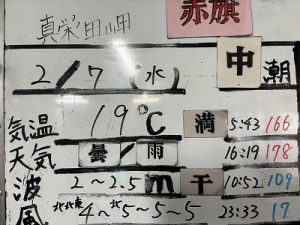 赤旗
真栄田岬
中潮
2/7(水)
気温 19℃ 満 5:43 166
天気 曇/雨 16:19 178
波 2～2.5m 干 10:52 109
風 北北東4～北5～5～5 23:33 17